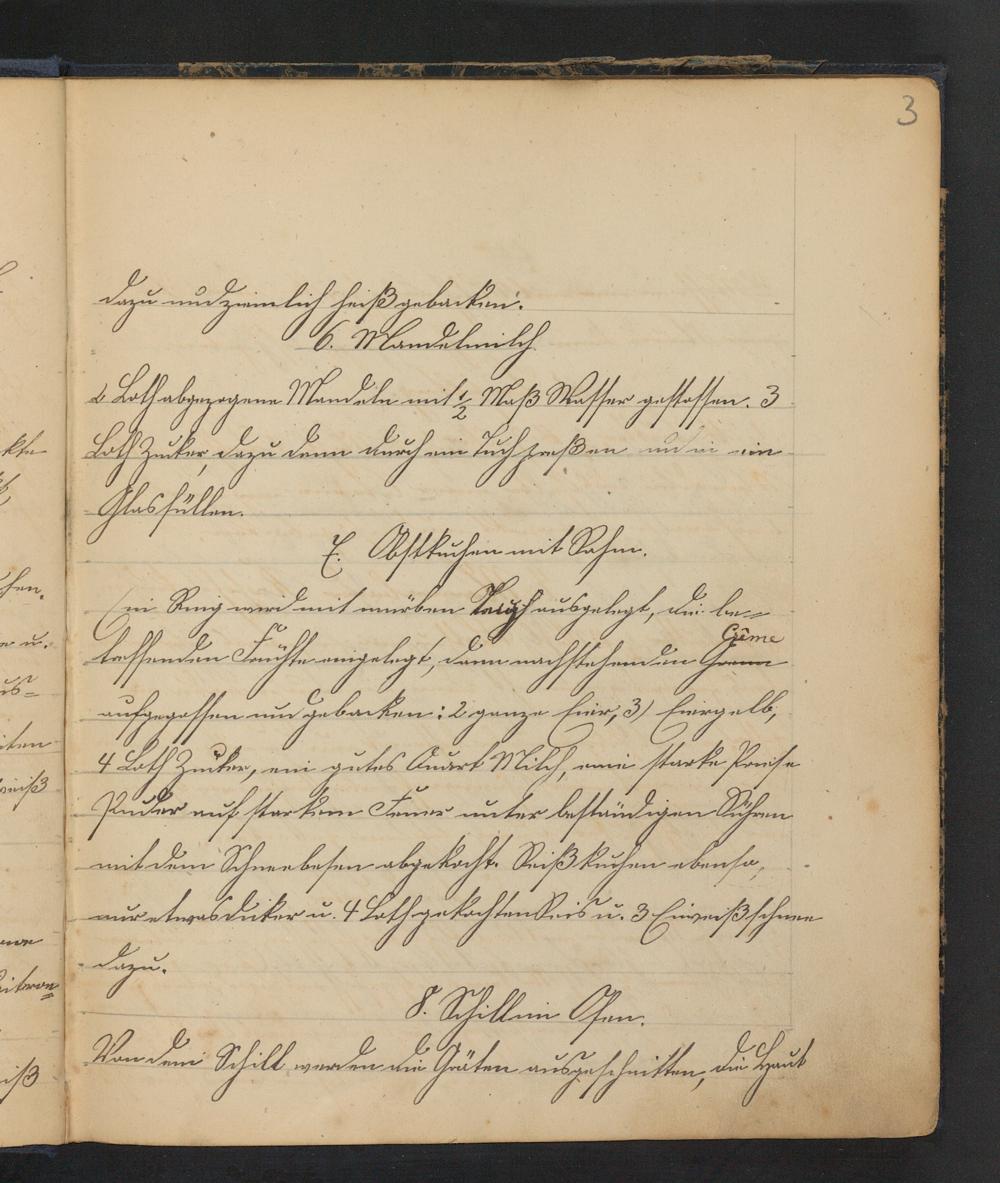 3
dazu und ziemlich heiß gebacken.
6. Mandelmilch
2 Loth abgezogene Mandeln mit ½ Maß Wasser gestossen. 3
Loth Zucker, dazu dann durch ein Tuch preßen und in ein
Glas füllen.
7. Obstkuchen mit Rahm.
Ein Ring wird mit mürben Teigh ausgelegt, die be=
treffenden Früchte eingelegt, dann nachstehenden Crème
aufgegossen und gebacken: 2 ganze Eier, 3) Eiergelb,
4 Loth Zucker, ein gutes Quart Milch, eine starke Preise
Puder auf starkem Feuer unter beständigen Rühren
mit dem Schneebesen abgekocht. Reißkuchen ebenso,
nur etwas dicker u. 4 Loth gekochten Reis u. 3 Eiweißschnee
dazu.
8. Schill im Ofen.
Von dem Schill werden die Gräten ausgeschnitten, die Haut
kte
chen.
e u.
us=
iten
weiß
citron=
iß